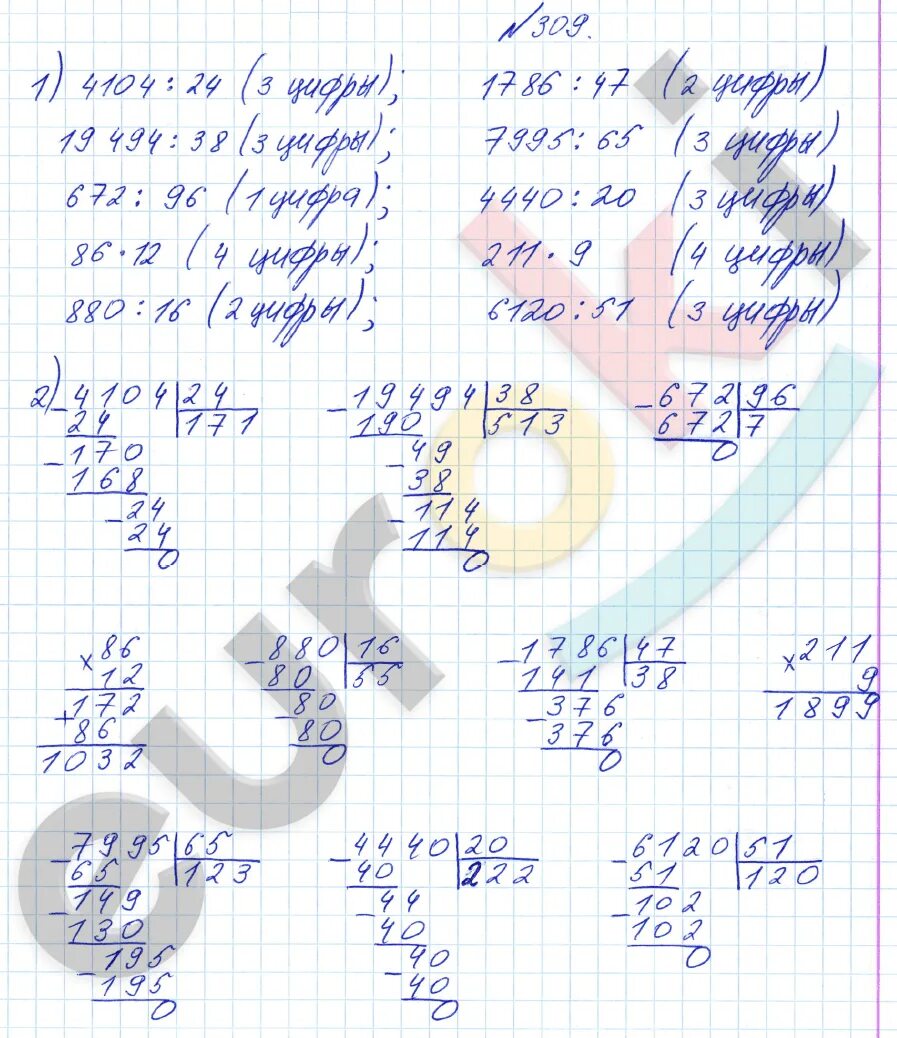 №309.
1) 4104 : 24 (3 цифры); 1786 : 47 (2 цифры)
19 494 : 38 (3 цифры); 7995 : 65 (3 цифры)
672 : 96 (1 цифра); 4440 : 20 (3 цифры)
86 · 12 (4 цифры); 211 · 9 (4 цифры)
880 : 16 (2 цифры); 6120 : 51 (3 цифры)
2) -4104|24 -19494|38 -672|96
24 |171 190 |513 672|7
-170 -49 0
168 38
-24 -114
24 114
0 0
×86 -880|16 -1786|47 ×211
12 80 |55 141 |38 9
172 -80 -376 1899
+86 80 376
1032 0 0
-7995|65 -4440|20 -6120|51
65 |123 40 |222 51 |120
-149 -44 -102
130 40 102
-195 -40 0
195 40
0 0
euroki